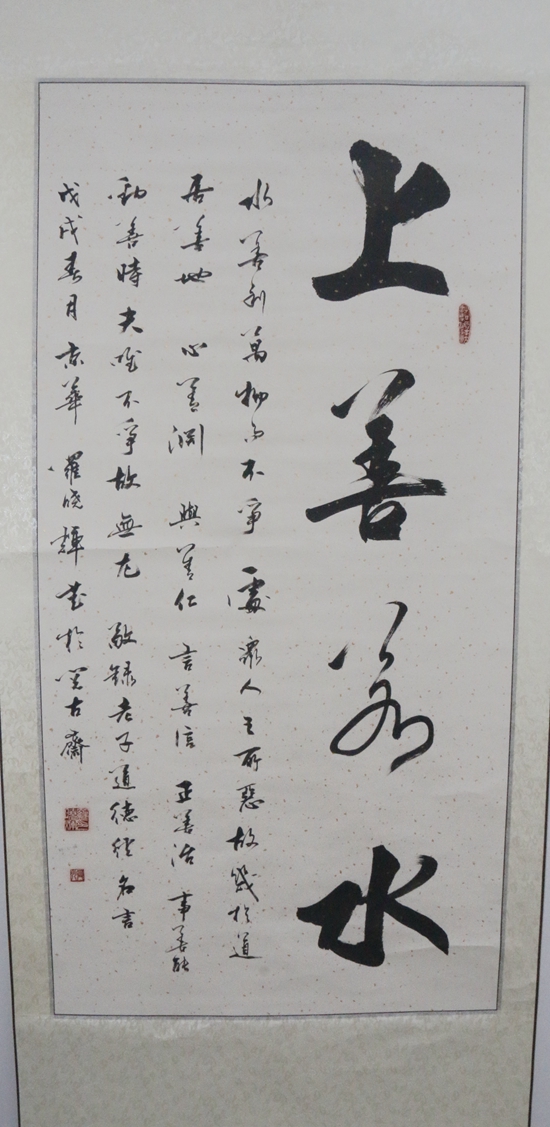 上善若水
水善利萬物而不爭處衆人之所惡故幾於道
居善地心善渊與善仁言善信正善治事善能
動善時夫唯不爭故無尤敬録老子道德經名言
戊戌春月京華羅晓輝書於覓古齋